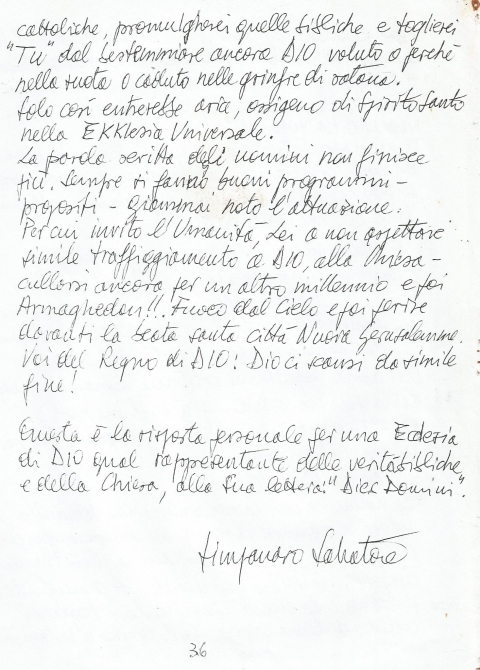 cattoliche, promulgherei quelle bibliche e toglierei
"Tu" dal bestemmiare ancora DIO voluto o perché
nella ruota o caduto nelle grinfie di satana.
Solo così entrerebbe aria, ossigeno di Spirito Santo
nella EKKlesia Universale.
La parola scritta degli uomini non finisce
più. Sempre si fanno buoni programmi -
propositi - giammai noto l'attuazione.
Per cui invito l'Umanità, Lei a non aspettare
simile traffiggiamento a DIO, alla Chiesa -
cullarsi ancora per un altro millennio e poi
Armaghedon!!. Fuoco dal Cielo e poi perire
davanti la beata santa città Nuova Gerusalemme.
Voi del Regno di DIO! Dio ci scansi da simile
fine!
Questa è la risposta personale per una Ecclesia
di DIO qual rappresentante delle verità bibliche
e della Chiesa, alla Sua lettera: "Dies Domini".
Salvatore
36